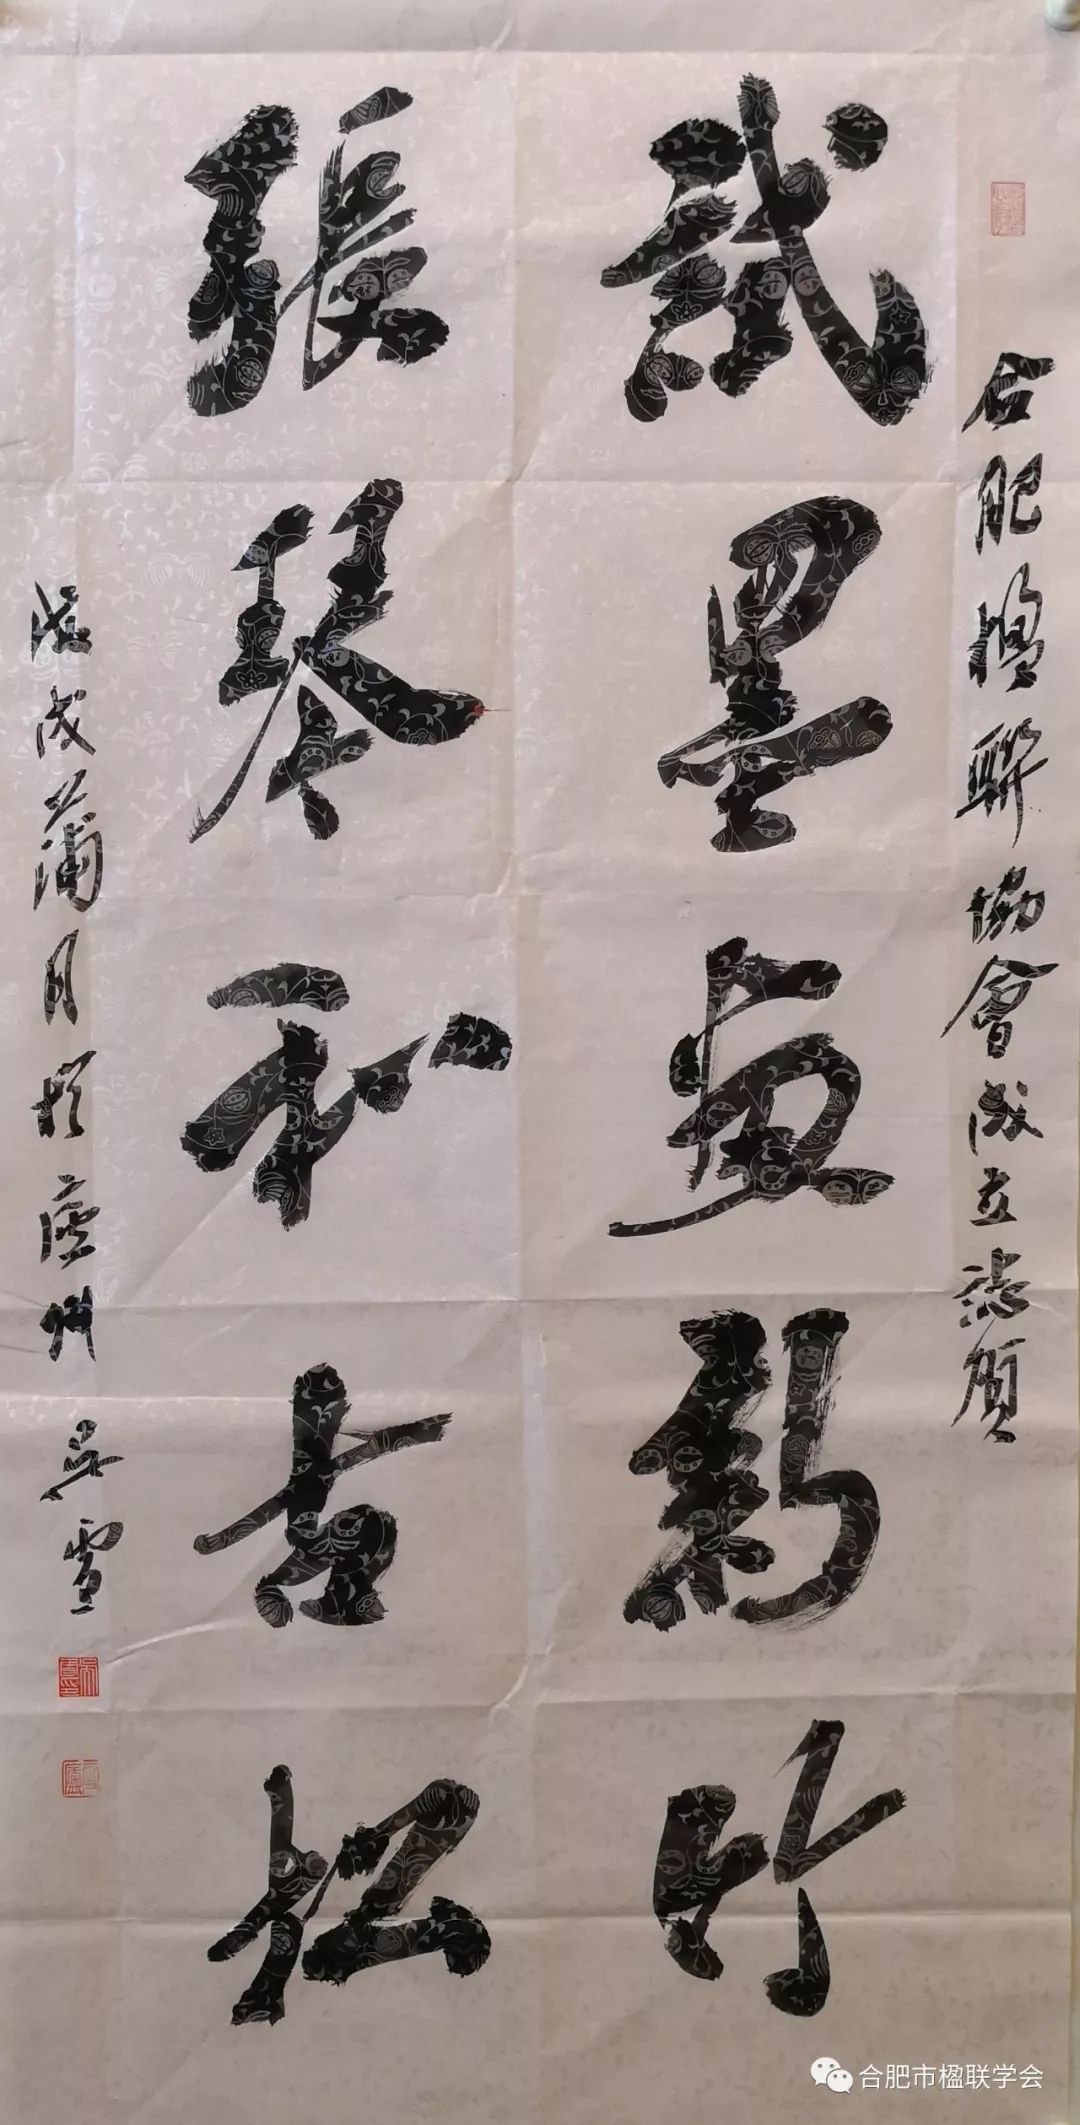 合肥楹聯協會成立誌賀
試墨畫新竹
張琴和古松
戌蒲月於廬州 吳雪
合肥市楹联学会